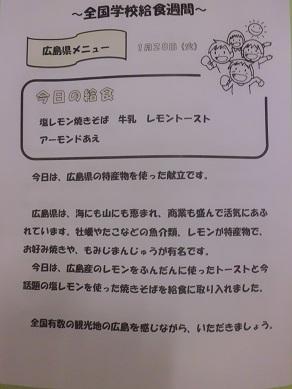 ～全国学校給食週間～
広島県メニュー
1月28日（火）
今日の給食
塩レモン焼きそば　牛乳　レモントースト
アーモンドあえ
今日は、広島県の特産物を使った献立です。
広島県は、海にも山にも恵まれ、商業も盛んで活気にあふ
れています。牡蠣やたこなどの魚介類、レモンが特産物で、
お好み焼きや、もみじまんじゅうが有名です。
今日は、広島産のレモンをふんだんに使ったトーストと今
話題の塩レモンを使った焼きそばを給食に取り入れました。
全国有数の観光地の広島を感じながら、いただきましょう。